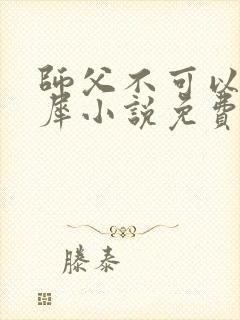 師父不可以
犀小說免費
滕泰